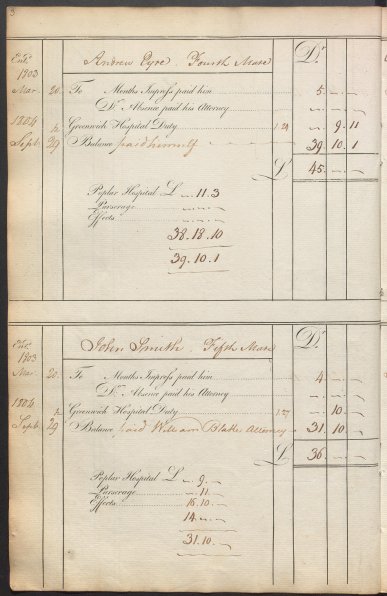 3
Entd. Andrew Eyre Fourth Mate Dr.
1803
Mar. 20. To Months Imprest paid him 5 " "
Do. Absence paid his Attorney " " "
1804 Greenwich Hospital Duty 1.29 " 9. 11
Sept. 29 Balance paid himself 39. 10. 1
£ 45. " "
Poplar Hospital £ ".11.3
Parserage
Effects
38.18.10
39.10.1
Entd. John Smith Fifth Mate Dr.
1803
Mar. 20. To Months Imprest paid him 4 " "
Do. Absence paid his Attorney " " "
1804 Greenwich Hospital Duty 1.27 " 10. "
Sept. 29 Balance paid William Blake Attorney 31. 10. "
£ 36. " "
Poplar Hospital £ ". 9. "
Parserage ". 11. "
Effects 16.10. "
14. " "
31.10. "